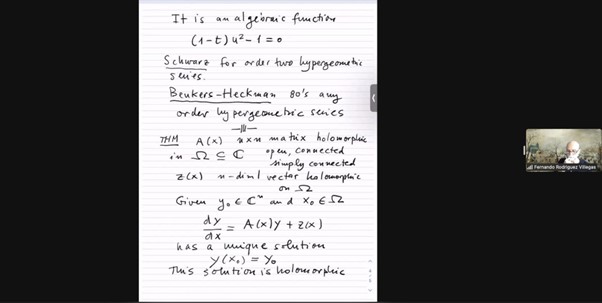 It is an algebraic function
(1-t) u² - 1 = 0
Schwarz for order two hypergeometric
series.
Beukers-Heckman 80's any
order hypergeometric series
THM A(x) n×n matrix holomorphic
in Ω ⊆ ℂ open, connected
simply connected
z(x) n-dim'l vector holomorphic
on Ω
Given y₀ ∈ ℂⁿ and x₀ ∈ Ω
dy/dx = A(x)y + z(x)
has a unique solution
y(x₀) = y₀
This solution is holomorphic
Fernando Rodriguez Villegas